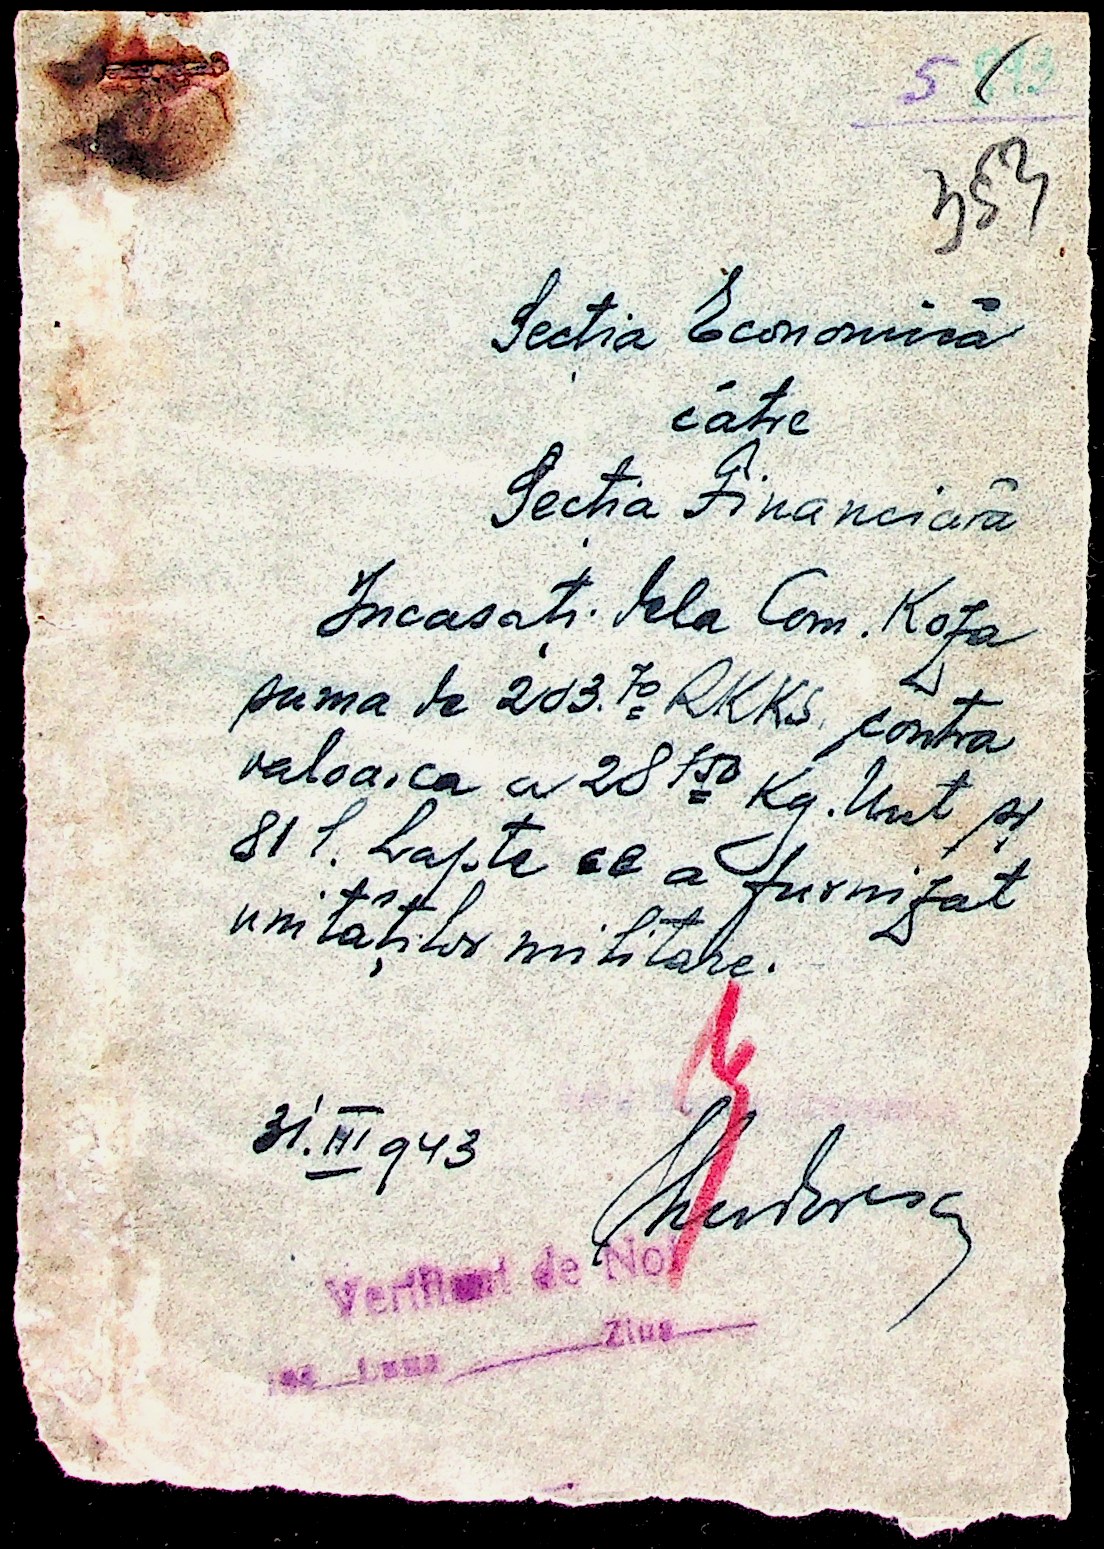 5
353
Secția Economică
către
Secția Financiară
Încasați dela Com. Koza
suma de 203.70 RKKS contra
valoarea a 28,550 Kg. Unt și
81 l. Lapte ce a furnizat
unităților militare.
31.III 943
Verificat de Noi
Luna Ziua